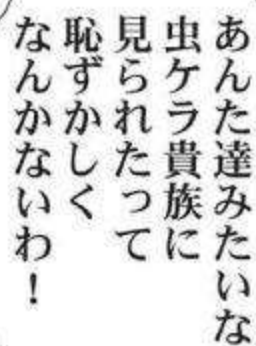 あんた達みたいな
虫ケラ貴族に
見られたって
恥ずかしく
なんかないわ！